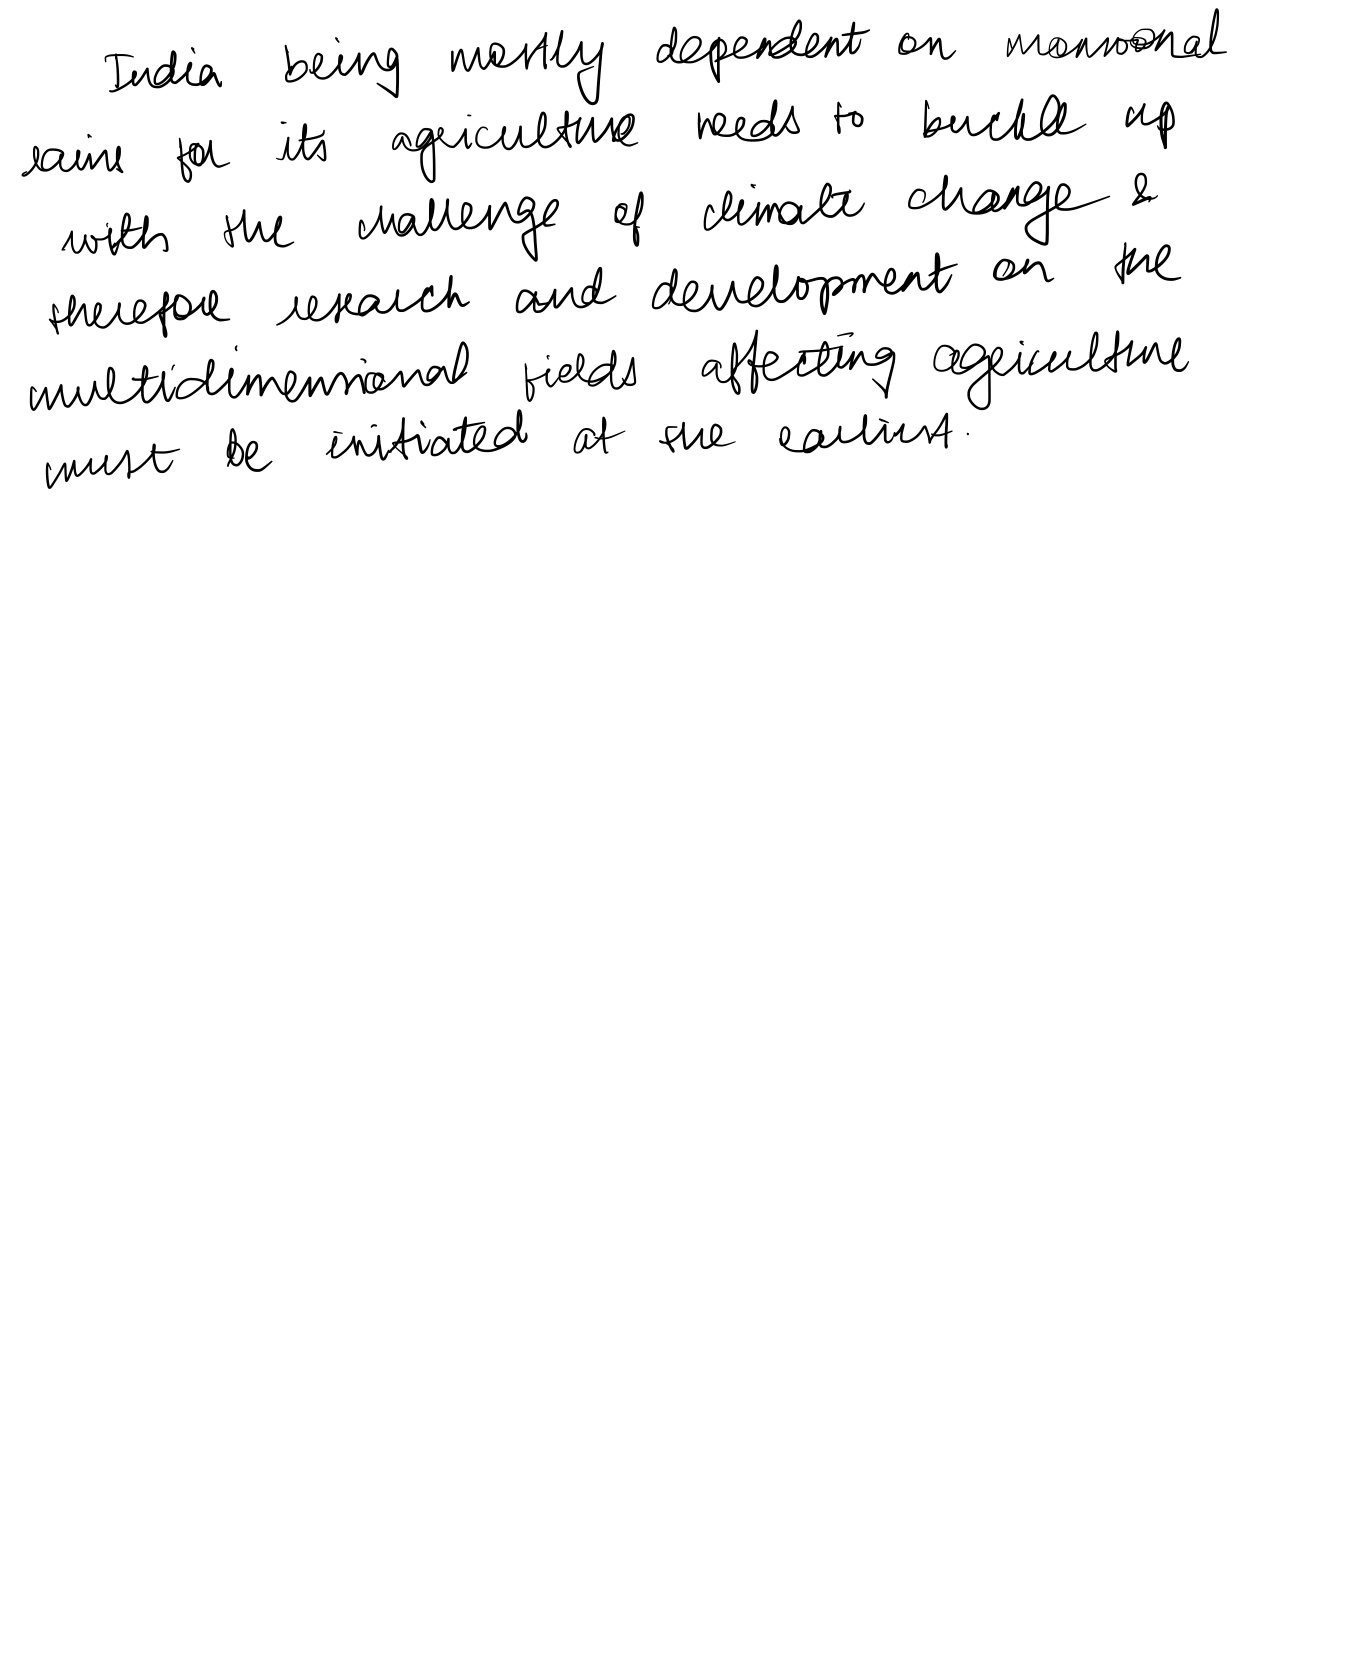 India being mostly dependent on monsoonal
rains for its agriculture needs to buckle up
with the challenge of climate change &
therefore research and development on the
multidimensional fields affecting agriculture
must be initiated at the earliest.